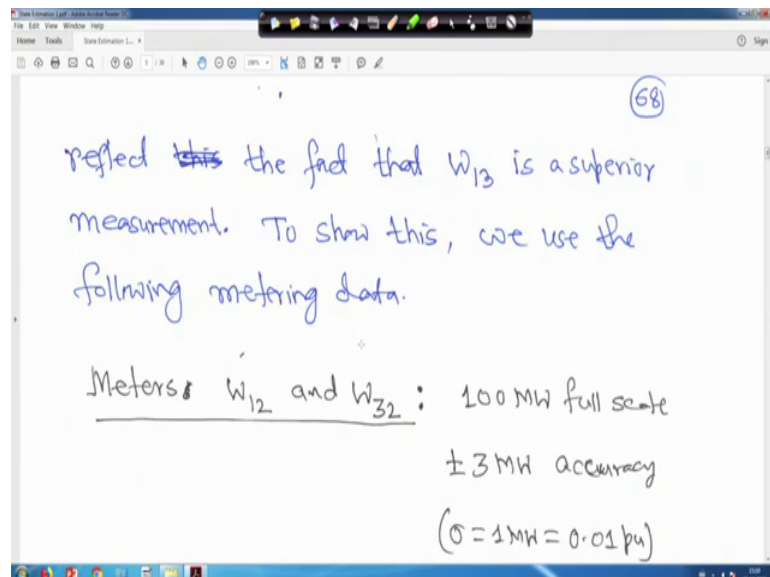 State Estimation 1.pdf - Adobe Acrobat Reader DC
File Edit View Window Help
Home Tools State Estimation 1... × Sign
68
reflect this the fact that W13 is a superior
measurement. To show this, we use the
following metering data.
Meters: W12 and W32 : 100 MW full scale
±3 MW accuracy
(σ = 1 MW = 0.01 pu)